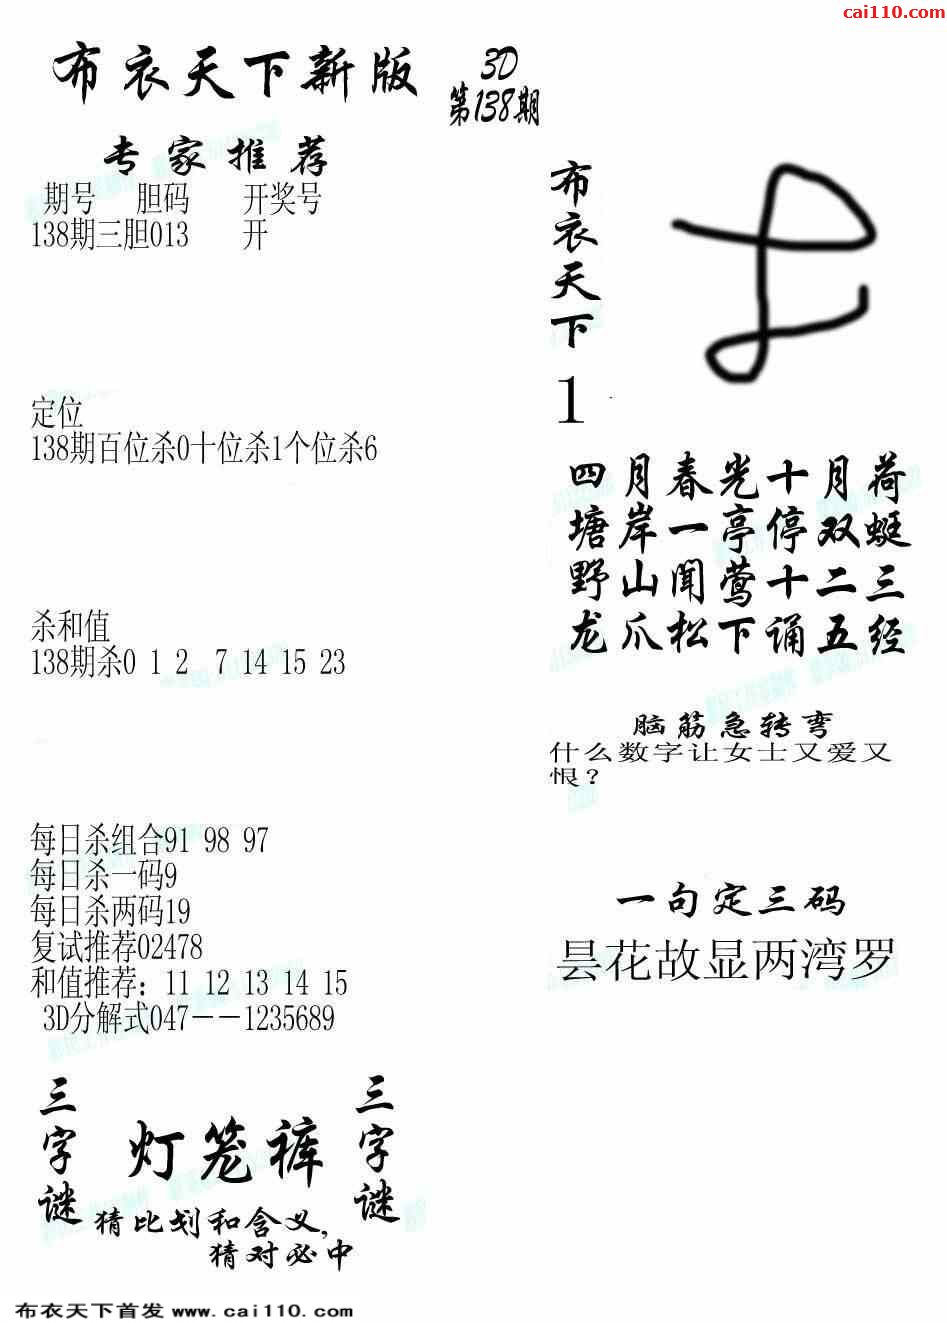 cai110.com
布衣天下新版
3D
第138期
专家推荐
期号 胆码 开奖号
138期三胆013 开
定位
138期百位杀0十位杀1个位杀6
杀和值
138期杀0 1 2 7 14 15 23
每日杀组合91 98 97
每日杀一码9
每日杀两码19
复试推荐02478
和值推荐：11 12 13 14 15
3D分解式047－－1235689
三字谜
灯笼裤
三字谜
猜比划和含义，
猜对必中
布衣天下
1
四月春光十月荷
塘岸一亭停双蜓
野山闻莺十二三
龙爪松下诵五经
脑筋急转弯
什么数字让女士又爱又
恨？
一句定三码
昙花故显两湾罗
布衣天下首发 www.cai110.com